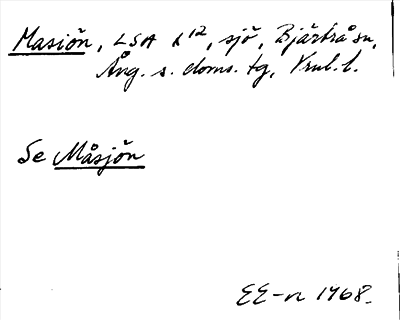 Masiön, LSA L¹², sjö, Bjärtrå sn,
Ång. s. doms. tg, Vnl. l.
Se Måsjön
EE-n 1968.